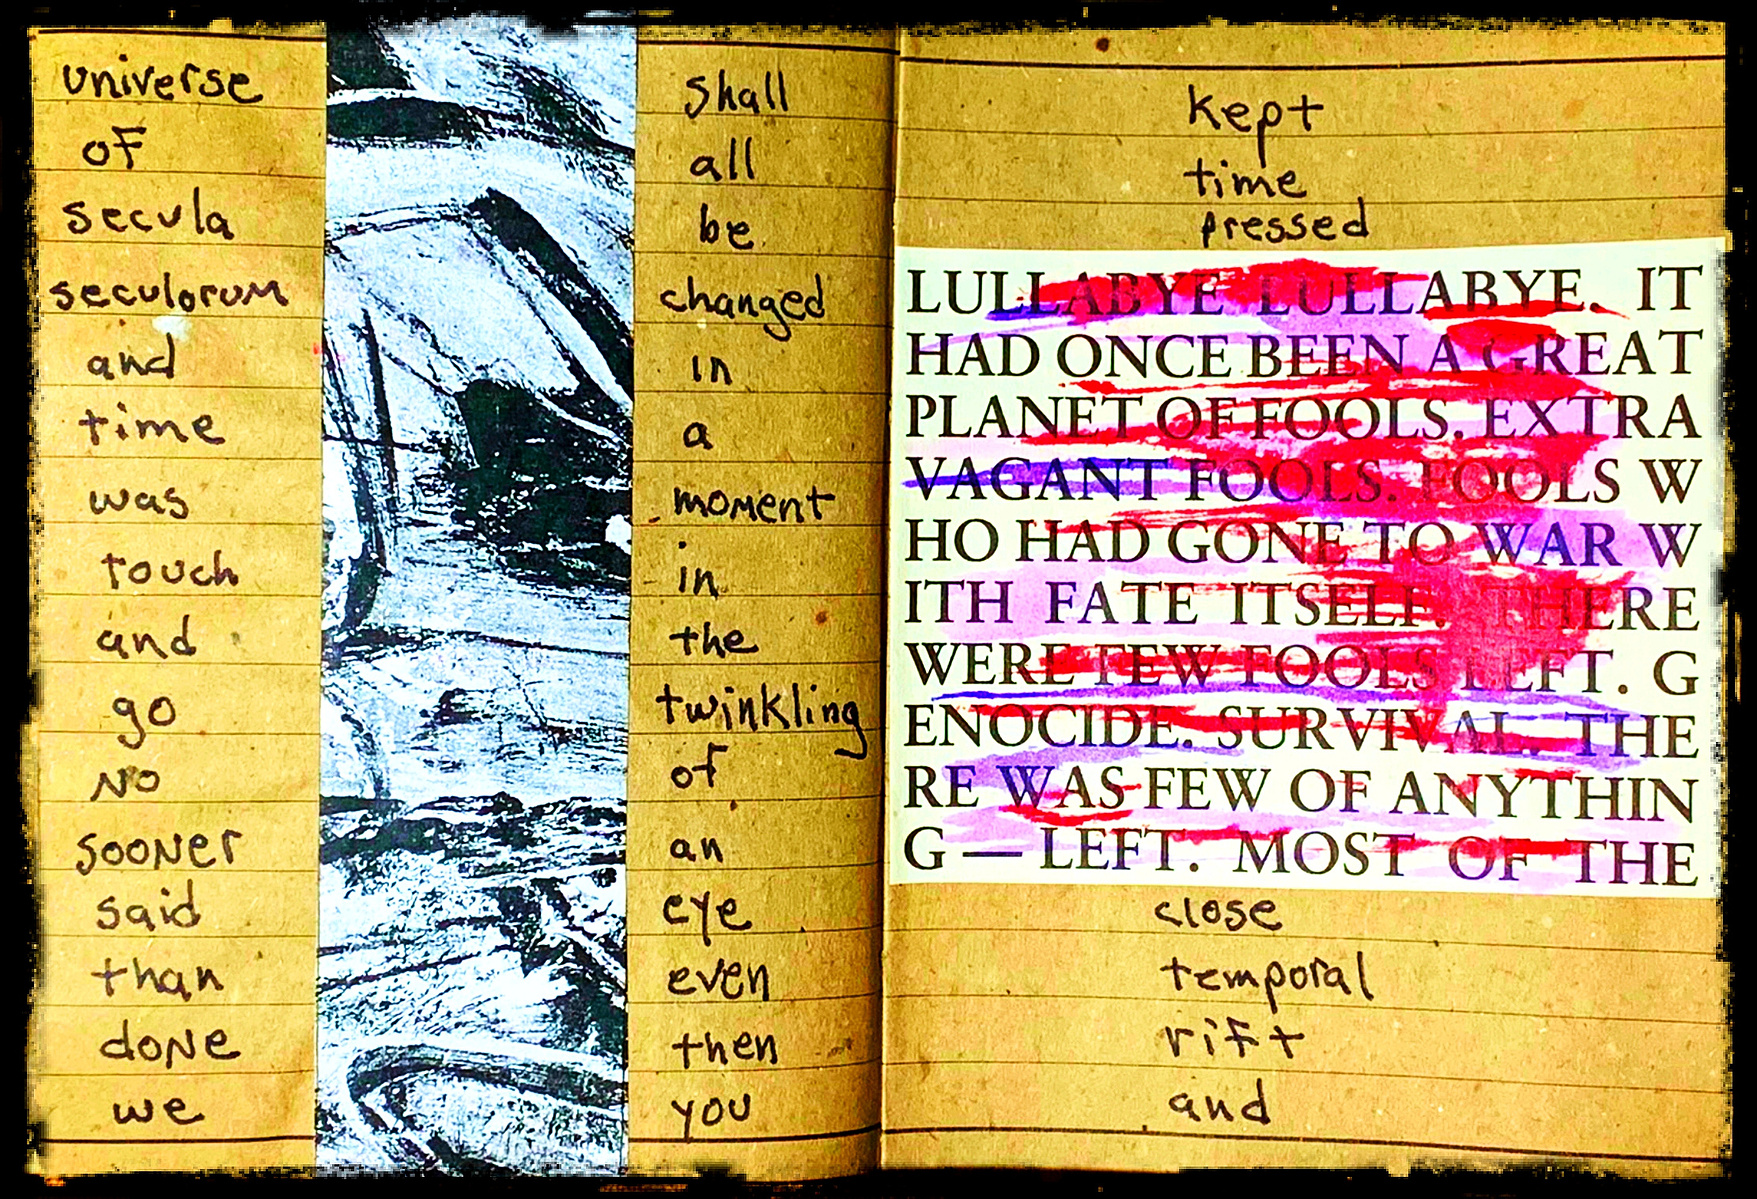 universe
of
secula
seculorum
and
time
was
touch
and
go
no
sooner
said
than
done
we
shall
all
be
changed
in
a
moment
in
the
twinkling
of
an
eye
even
then
you
kept
time
pressed
LULLABYE LULLABYE. IT
HAD ONCE BEEN A GREAT
PLANET OF FOOLS. EXTRA
VAGANT FOOLS. FOOLS W
HO HAD GONE TO WAR W
ITH FATE ITSELF. THERE
WERE FEW FOOLS LEFT. G
ENOCIDE. SURVIVAL. THE
RE WAS FEW OF ANYTHIN
G — LEFT. MOST OF THE
close
temporal
rift
and